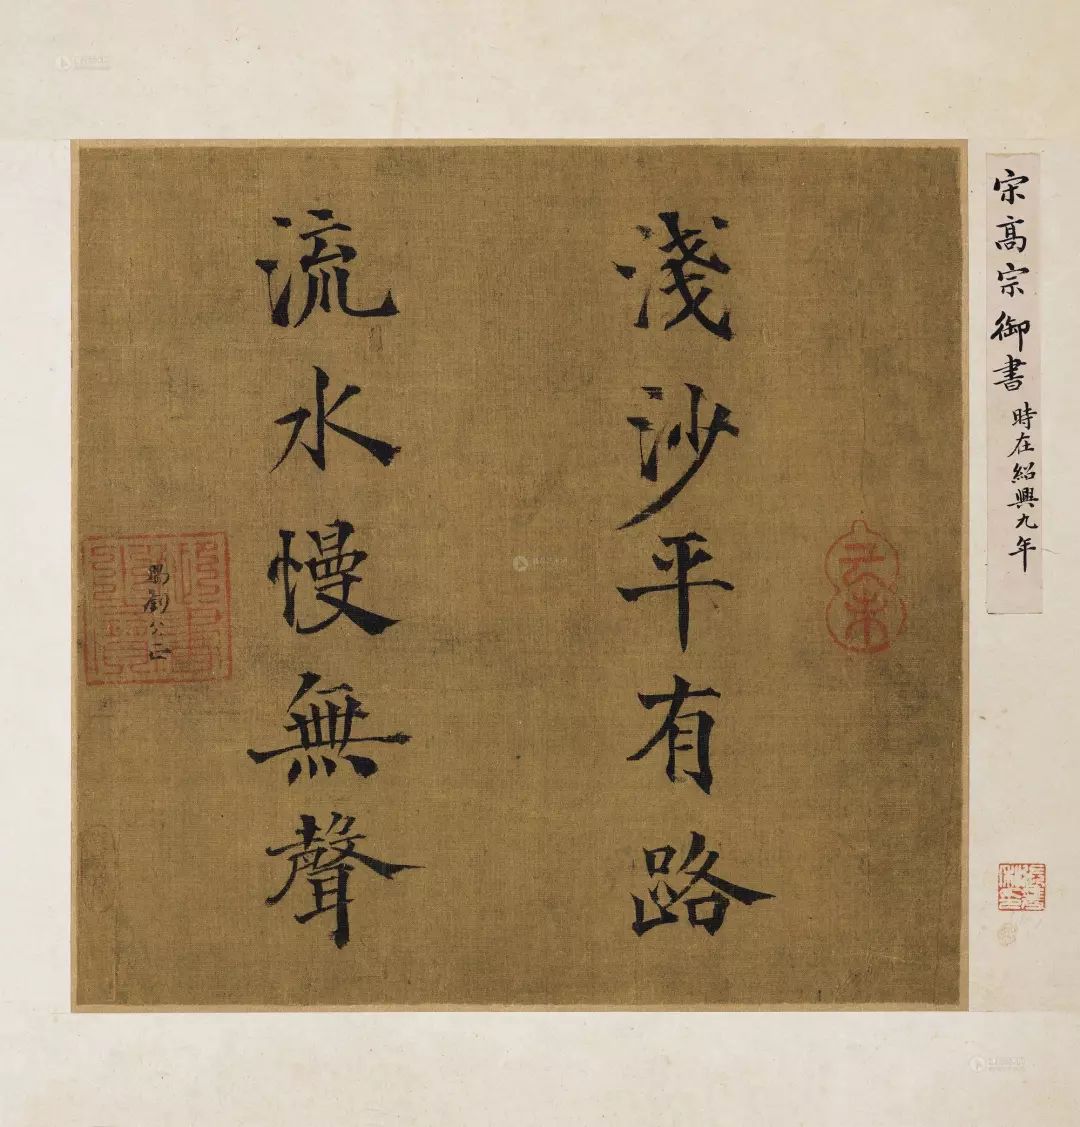 宋高宗御書
時在紹興九年
淺沙平有路
流水慢無聲
賜劉公正
己未